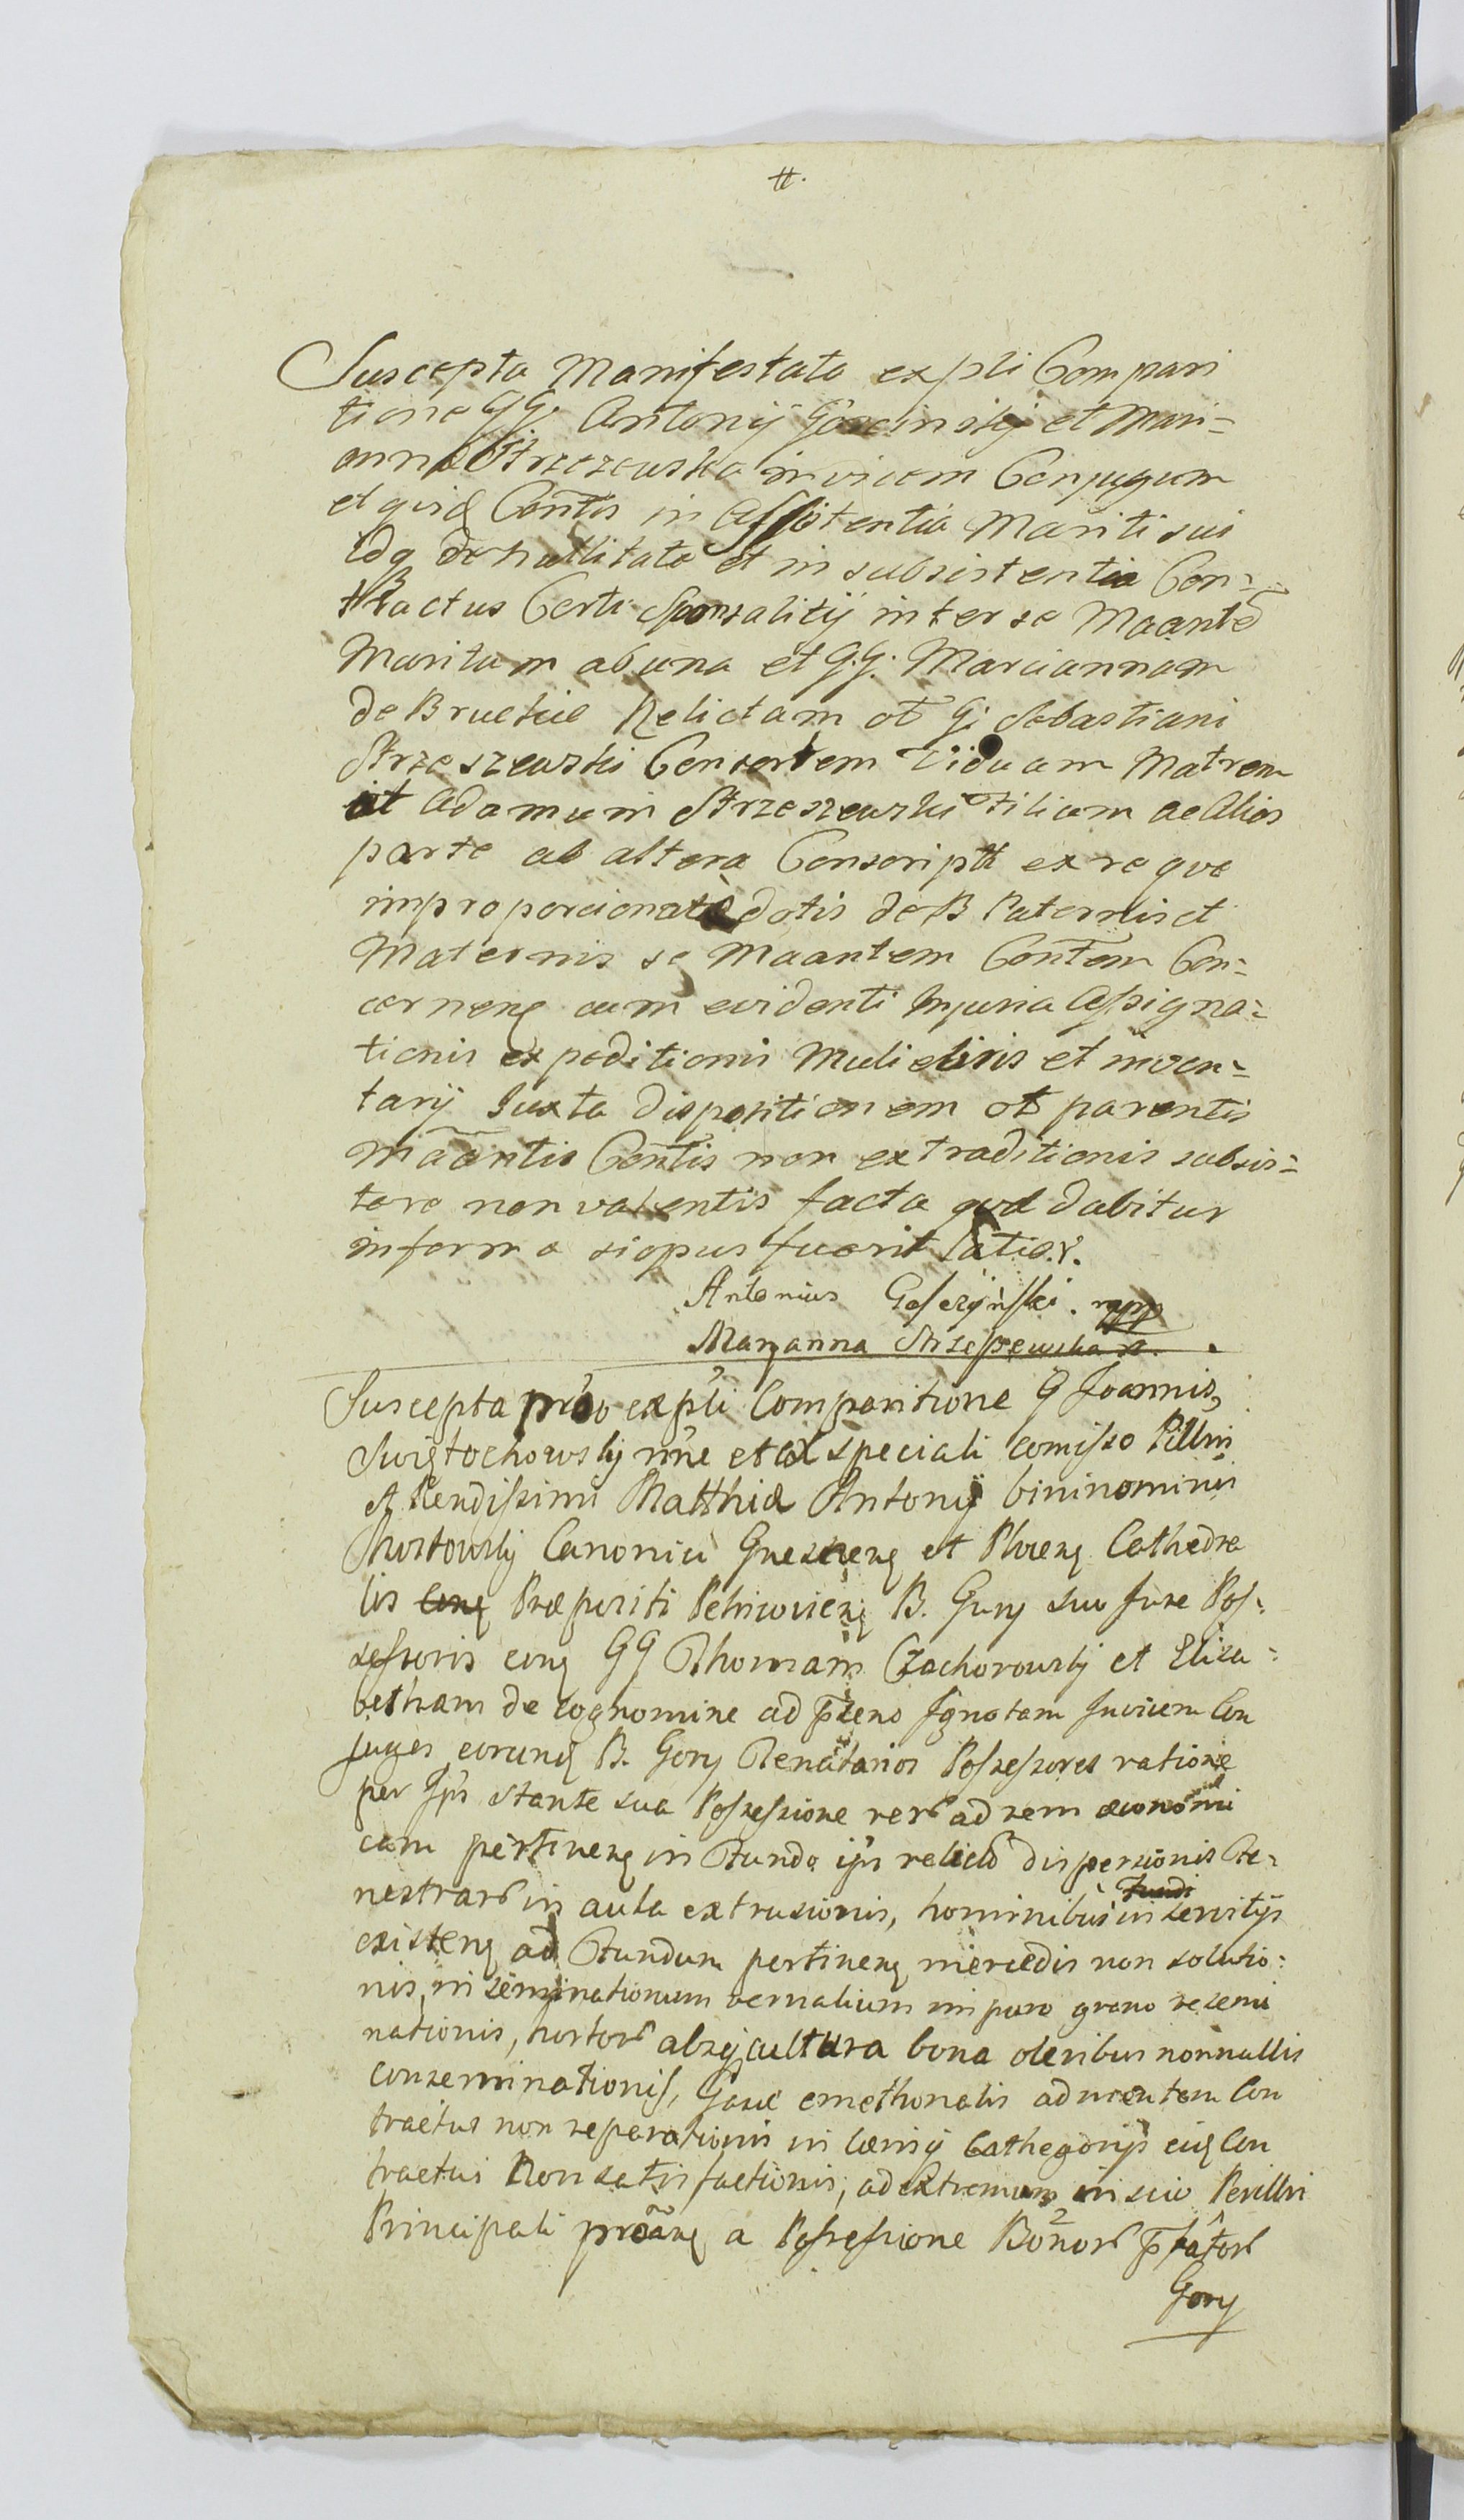 #.
Suscepta Manifestata ex psti Compari
tione GG. Antonij Goscinskij et Mari=
anna Strzezewska invicem Conjugum
et quid Contis in Assistentia Mariti sui
idq de nullitate et in subsistentia Con=
tractus Certi Sponsalitij inter se Maantē
Maritum ab una et G.G. Mariannam
de Bruckie Relictam ot G. Sebastiani
Strzeszewski Consortem viduam Matrem
et Adamum Strzeszewski Filium ac Alios
parte ab altera Conscriptt ex re quo
improporcionatè dotis de B Paternis et
Maternis se Maantem Contem Con=
cerneng cum evidenti Injuria Assigna=
tionis expeditionis Muliebris et inven=
tarij Juxta dispositionem ot parentis
Maantis Contis non extraditionis subsis=
tere non valentis facta qvd dabitur
in forma si opus fuerit latior.
Antonius Gosczÿnski. mpp
Maryanna Strzeszewska
Suscepta pr̃o ex p̃li Comparitione G Joannis
Swiętochowskj nñe et ex speciali comisso Pillris
et Rendissimi Matthiæ Antonij bininominis
Canonici Gnesneng et Ploceng Cathedra
lis Præpositi B. Gory suo Jure Pos=
sessoris cong GG Thomam Czachorowskj et Eliza=
betham de cognomine ad p̃sens Ignotam Invicem Con
juges eorund B. Gory Tenutarios Possessores ratione
per Ips stante sua Possessione rerũ ad rem œconomi
cam pertineng in Fundo ijs relictõ dispersionis Fe=
nestrarũ in aula extrusionis, hominibus in servitijs
existeng ad Fundum pertineng mercedis non solutio=
nis, in seminationum vernalium impuro grano resemi
nationis, hortorũ absq cultura bona oleribus nonnullis
conseminationis, ad mentem Con
tractus non reparationis in cœnisq Cathegorijs eiuq Con
tractui Non satisfactionis, ad Extremum in suo Perillri
Principali a Possessione Bonorũ p̃fatorũ
Gory